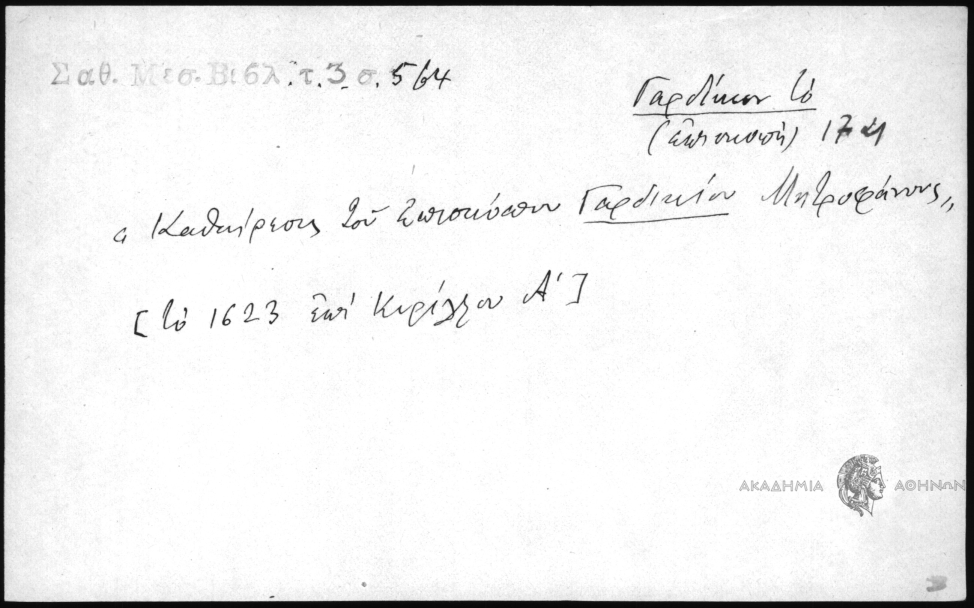 Σαθ. Μεσ. Βιβλ. τ. 3 σ. 564
Γαρδίκιον τὸ
(ἐπισκοπὴ)
« Καθαίρεσις τοῦ Ἐπισκόπου Γαρδικίου Μητροφάνους „
[τὸ 1623 ἐπὶ Κυρίλλου Α΄]
ΑΚΑΔΗΜΙΑ ΑΘΗΝΩΝ